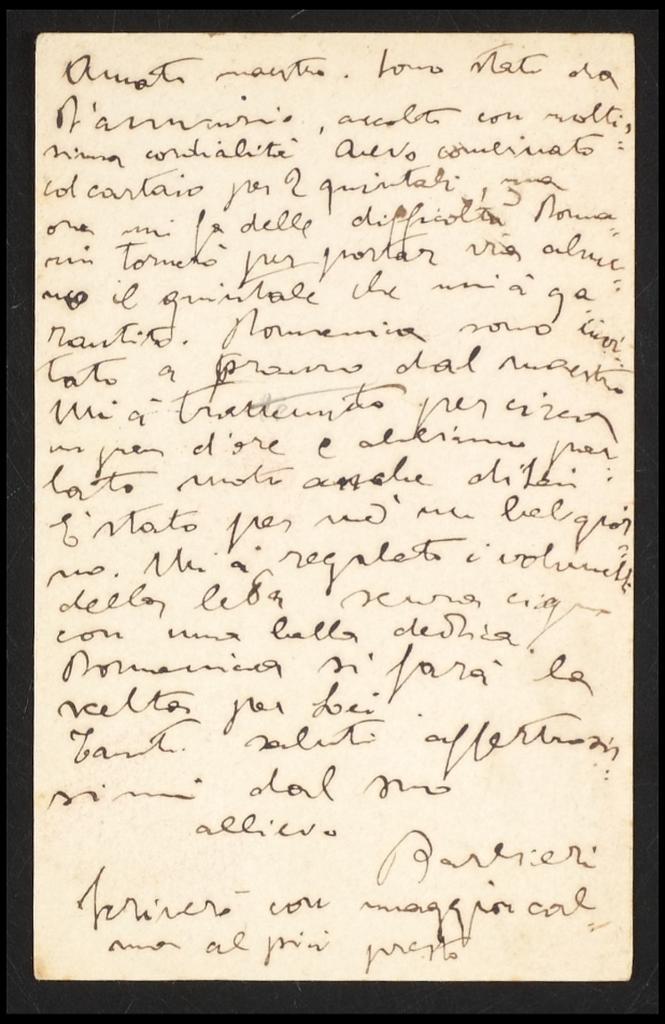 Amato maestro. Sono stato da
D'annunzio, accolto con molti=
ssima cordialità Avevo combinato
col cartaio per 2 quintali, ma
ora mi fa delle difficoltà Doma=
ni tornerò per portar via alme=
no il quintale che mi à ga=
rantito. Domenica sono invi=
tato a pranzo dal maestro
Mi à trattenuto per circa
un paio d'ore e abbiamo par=
lato molto anche di Lei
E' stato per me un bel gior=
no. Mi à regalato i volumetti
della leda senza cigno
con una bella dedica
Domenica si farà la
scelta per Lei
Tanti saluti affettuosis=
simi dal suo
allievo
Barbieri
Scriverò con maggior cal=
ma al più presto